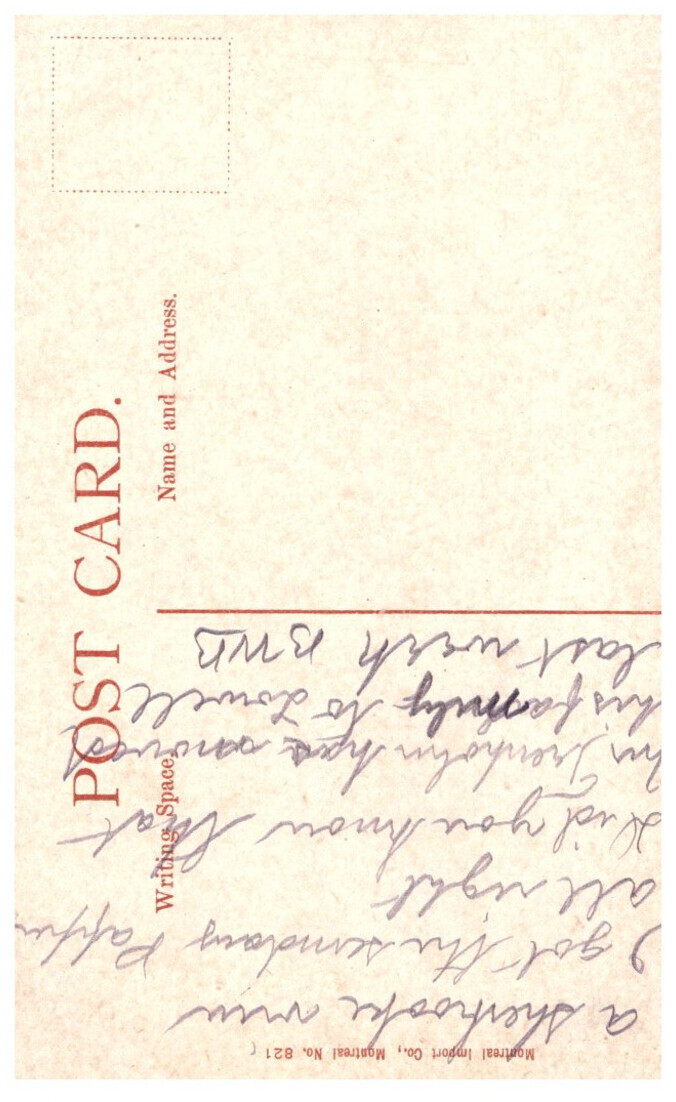 POST CARD.
Name and Address.
Writing Space.
Montreal Import Co., Montreal No. 821
a view
I got the sundays
all right
Did you know that
Mr Trenholm has moved
his family to Lowell
last week BWB